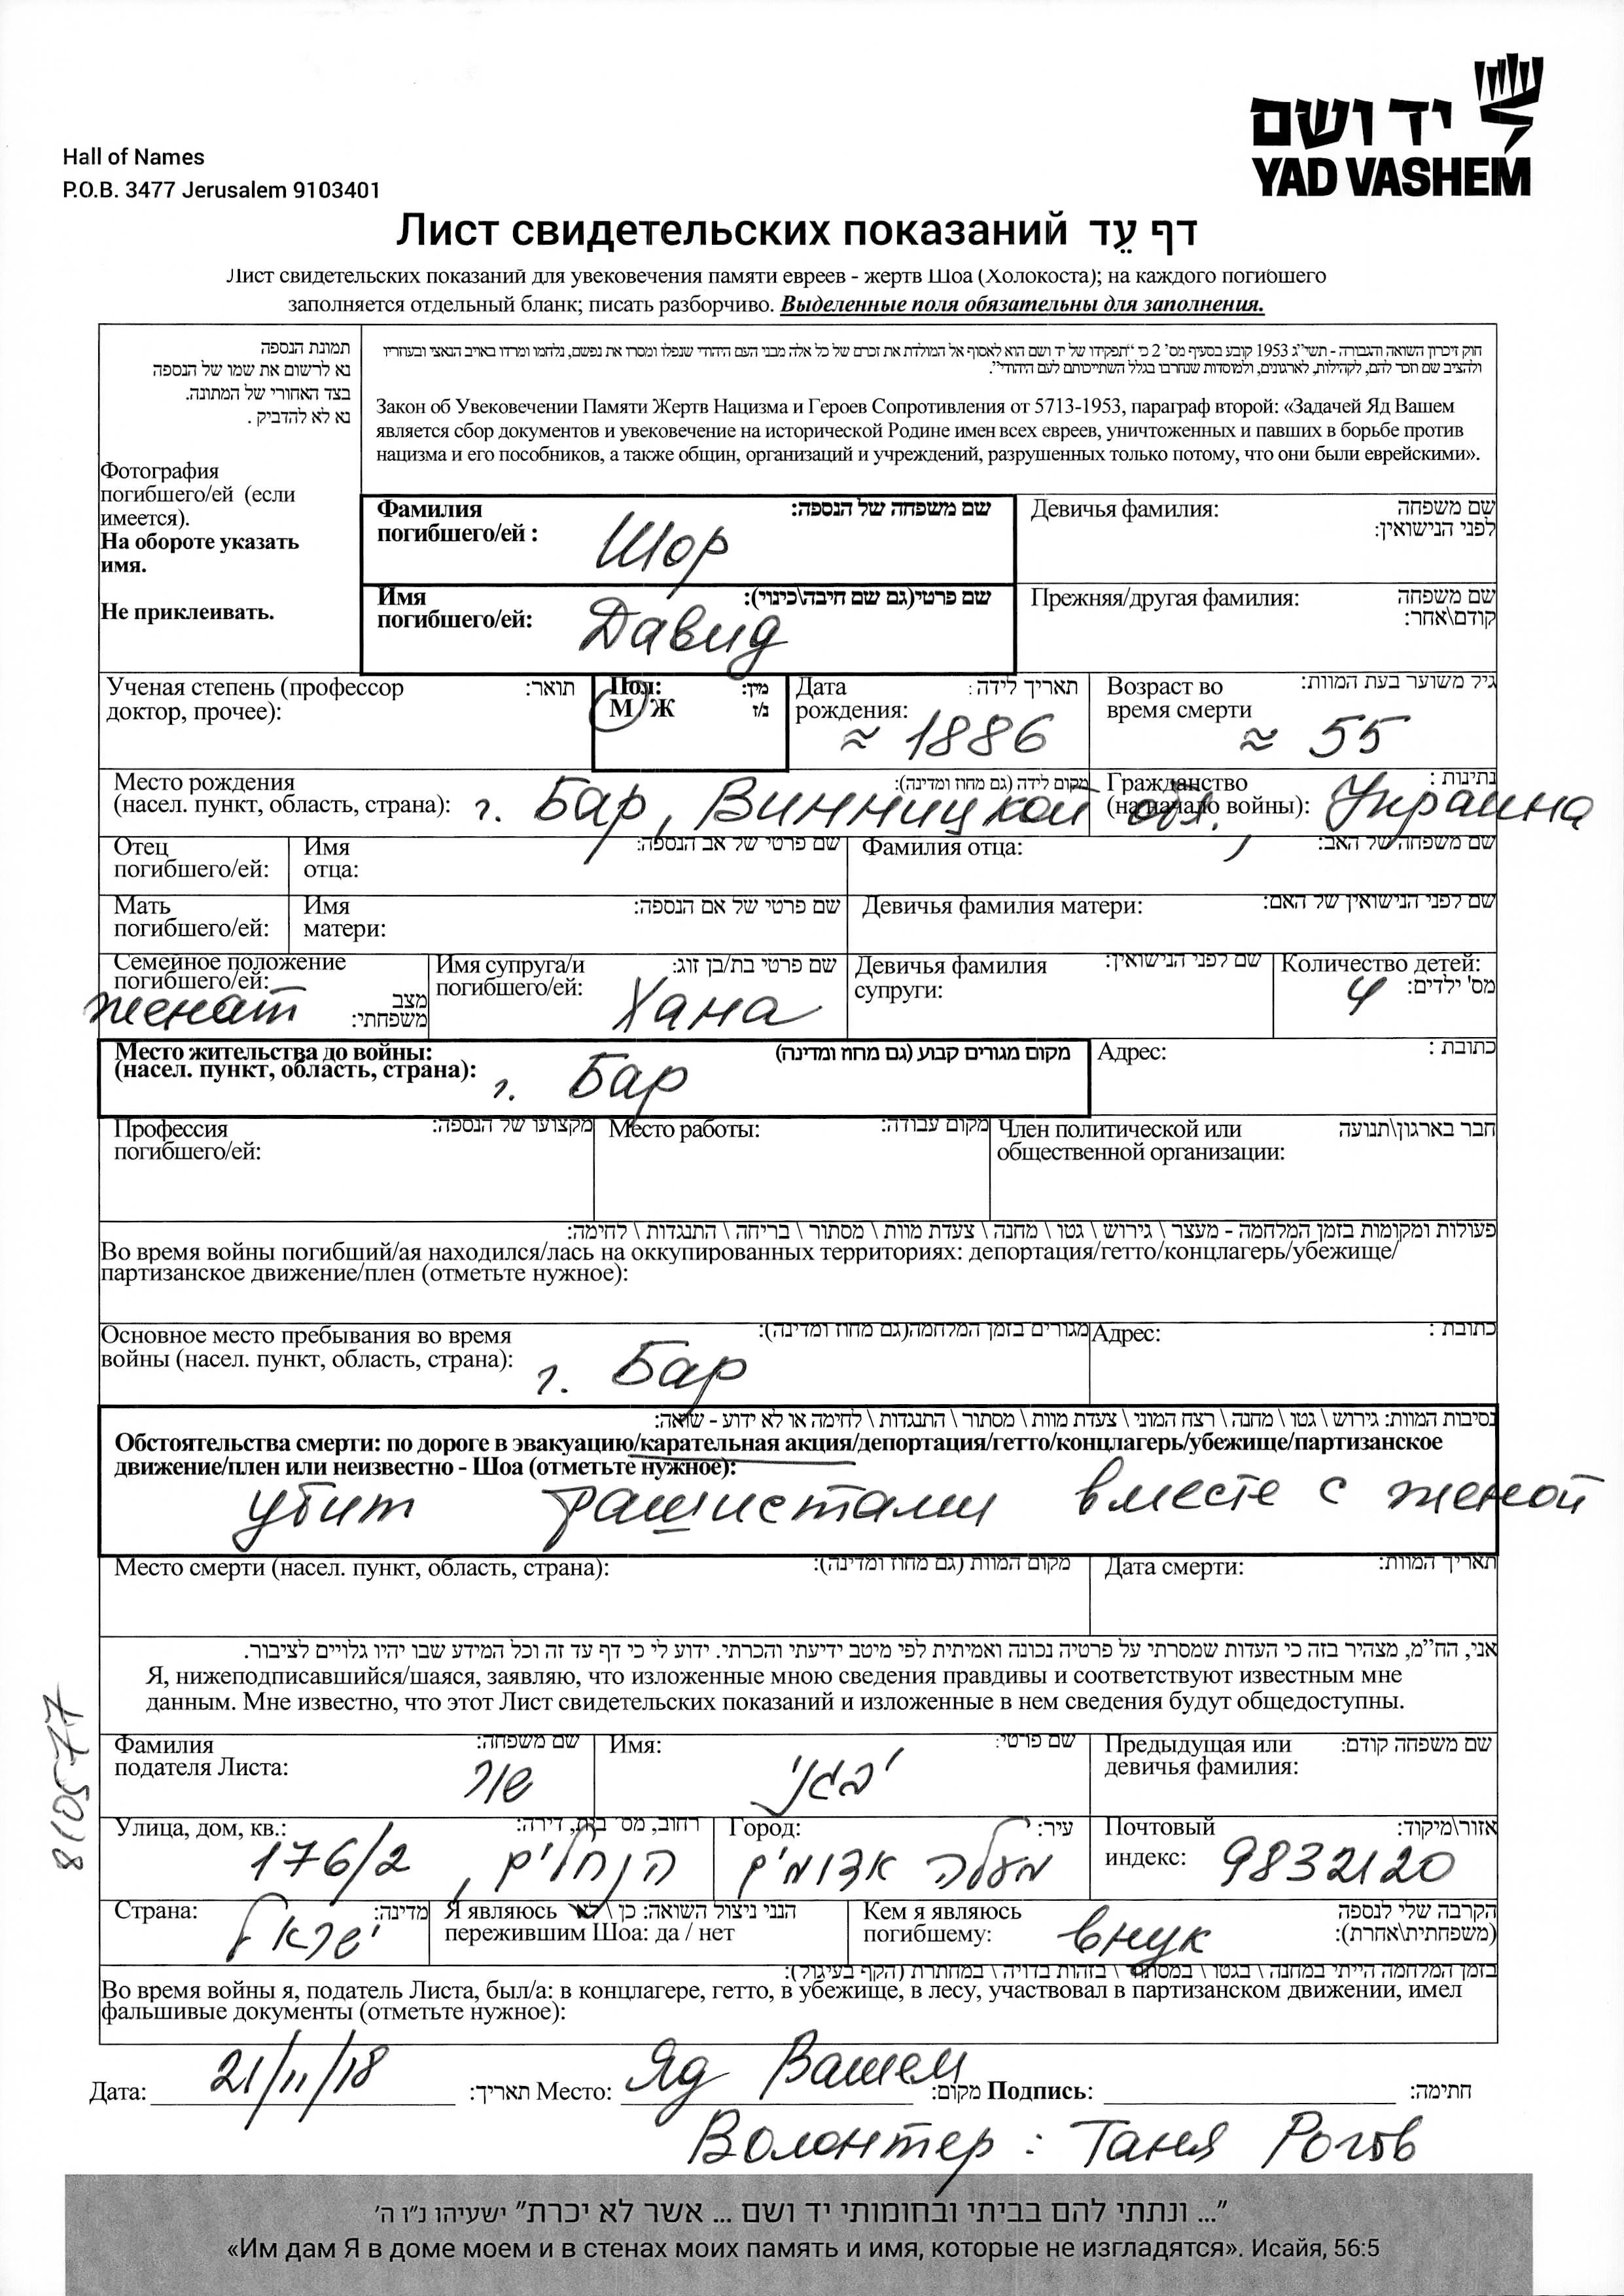 יד ושם
YAD VASHEM
Hall of Names
P.O.B. 3477 Jerusalem 9103401
Лист свидетельских показаний דף עֵד
Лист свидетельских показаний для увековечения памяти евреев - жертв Шоа (Холокоста); на каждого погибшего
заполняется отдельный бланк; писать разборчиво. Выделенные поля обязательны для заполнения.
תמונת הנספה
נא לרשום את שמו של הנספה
בצד האחורי של המתונה.
נא לא להדביק.
Фотография
погибшего/ей (если
имеется).
На обороте указать
имя.
Не приклеивать.
חוק זיכרון השואה והגבורה - תשי"ג 1953 קובע בסעיף מס' 2 כי "תפקידו של יד ושם הוא לאסוף אל המולדת את זכרם של כל אלה מבני העם היהודי שנפלו ומסרו את נפשם, נלחמו ומרדו באויב הנאצי ובעוזריו
ולהציב שם וזכר להם, לקהילות, לארגונים, ולמוסדות שנחרבו בגלל השתייכותם לעם היהודי".
Закон об Увековечении Памяти Жертв Нацизма и Героев Сопротивления от 5713-1953, параграф второй: «Задачей Яд Вашем
является сбор документов и увековечение на исторической Родине имен всех евреев, уничтоженных и павших в борьбе против
нацизма и его пособников, а также общин, организаций и учреждений, разрушенных только потому, что они были еврейскими».
Фамилия погибшего/ей : שם משפחה של הנספה:
Шор
Девичья фамилия: שם משפחה לפני הנישואין:
Имя погибшего/ей: שם פרטי(גם שם חיבה\כינוי):
Давид
Прежняя/другая фамилия: שם משפחה קודם\אחר:
Ученая степень (профессор доктор, прочее): תואר:
Пол: מין:
М / Ж נ/ז
Дата рождения: תאריך לידה:
≈ 1886
Возраст во время смерти גיל משוער בעת המוות:
≈ 55
Место рождения (насел. пункт, область, страна): מקום לידה (גם מחוז ומדינה):
г. Бар, Винницкой обл.,
Гражданство (на начало войны): נתינות :
Украина
Отец погибшего/ей:
Имя отца: שם פרטי של אב הנספה:
Фамилия отца: שם משפחה של האב:
Мать погибшего/ей:
Имя матери: שם פרטי של אם הנספה:
Девичья фамилия матери: שם לפני הנישואין של האם:
Семейное положение погибшего/ей: מצב משפחתי:
женат
Имя супруга/и погибшего/ей: שם פרטי בת/בן זוג:
Хана
Девичья фамилия супруги: שם לפני הנישואין:
Количество детей: מס' ילדים:
4
Место жительства до войны: (насел. пункт, область, страна): מקום מגורים קבוע (גם מחוז ומדינה)
г. Бар
Адрес: כתובת :
Профессия погибшего/ей: מקצועו של הנספה:
Место работы: מקום עבודה:
Член политической или общественной организации: חבר בארגון\תנועה
פעולות ומקומות בזמן המלחמה - מעצר \ גירוש \ גטו \ מחנה \ צעדת מוות \ מסתור \ בריחה \ התנגדות \ לחימה:
Во время войны погибший/ая находился/лась на оккупированных территориях: депортация/гетто/концлагерь/убежище/
партизанское движение/плен (отметьте нужное):
Основное место пребывания во время войны (насел. пункт, область, страна): מגורים בזמן המלחמה(גם מחוז ומדינה):
г. Бар
Адрес: כתובת :
נסיבות המוות: גירוש \ גטו \ מחנה \ רצח המוני \ צעדת מוות \ מסתור \ התנגדות \ לחימה או לא ידוע - שואה:
Обстоятельства смерти: по дороге в эвакуацию/карательная акция/депортация/гетто/концлагерь/убежище/партизанское
движение/плен или неизвестно - Шоа (отметьте нужное):
убит фашистами вместе с женой
Место смерти (насел. пункт, область, страна): מקום המוות (גם מחוז ומדינה):
Дата смерти: תאריך המוות:
אני, הח"מ, מצהיר בזה כי העדות שמסרתי על פרטיה נכונה ואמיתית לפי מיטב ידיעתי והכרתי. ידוע לי כי דף עד זה וכל המידע שבו יהיו גלויים לציבור.
Я, нижеподписавшийся/шаяся, заявляю, что изложенные мною сведения правдивы и соответствуют известным мне
данным. Мне известно, что этот Лист свидетельских показаний и изложенные в нем сведения будут общедоступны.
810577
Фамилия подателя Листа: שם משפחה:
שור
Имя: שם פרטי:
יבגני
Предыдущая или девичья фамилия: שם משפחה קודם:
Улица, дом, кв.: רחוב, מס' בית, דירה:
הנחלים, 176/2
Город: עיר:
מעלה אדומים
Почтовый индекс: אזור\מיקוד:
9832120
Страна: מדינה:
ישראל
Я являюсь пережившим Шоа: да / нет הנני ניצול השואה: כן \ לא
Кем я являюсь погибшему: הקרבה שלי לנספה (משפחתית\אחרת):
внук
בזמן המלחמה הייתי במחנה \ בגטו \ במסתור \ בזהות בדויה \ במחתרת (הקף בעיגול):
Во время войны я, податель Листа, был/а: в концлагере, гетто, в убежище, в лесу, участвовал в партизанском движении, имел
фальшивые документы (отметьте нужное):
Дата: 21/11/18 תאריך: Место: Яд Вашем מקום: Подпись: חתימה:
Волонтер : Таня Рогов
"... ונתתי להם בביתי ובחומותי יד ושם ... אשר לא יכרת" ישעיהו נ"ו ה'
«Им дам Я в доме моем и в стенах моих память и имя, которые не изгладятся». Исайя, 56:5